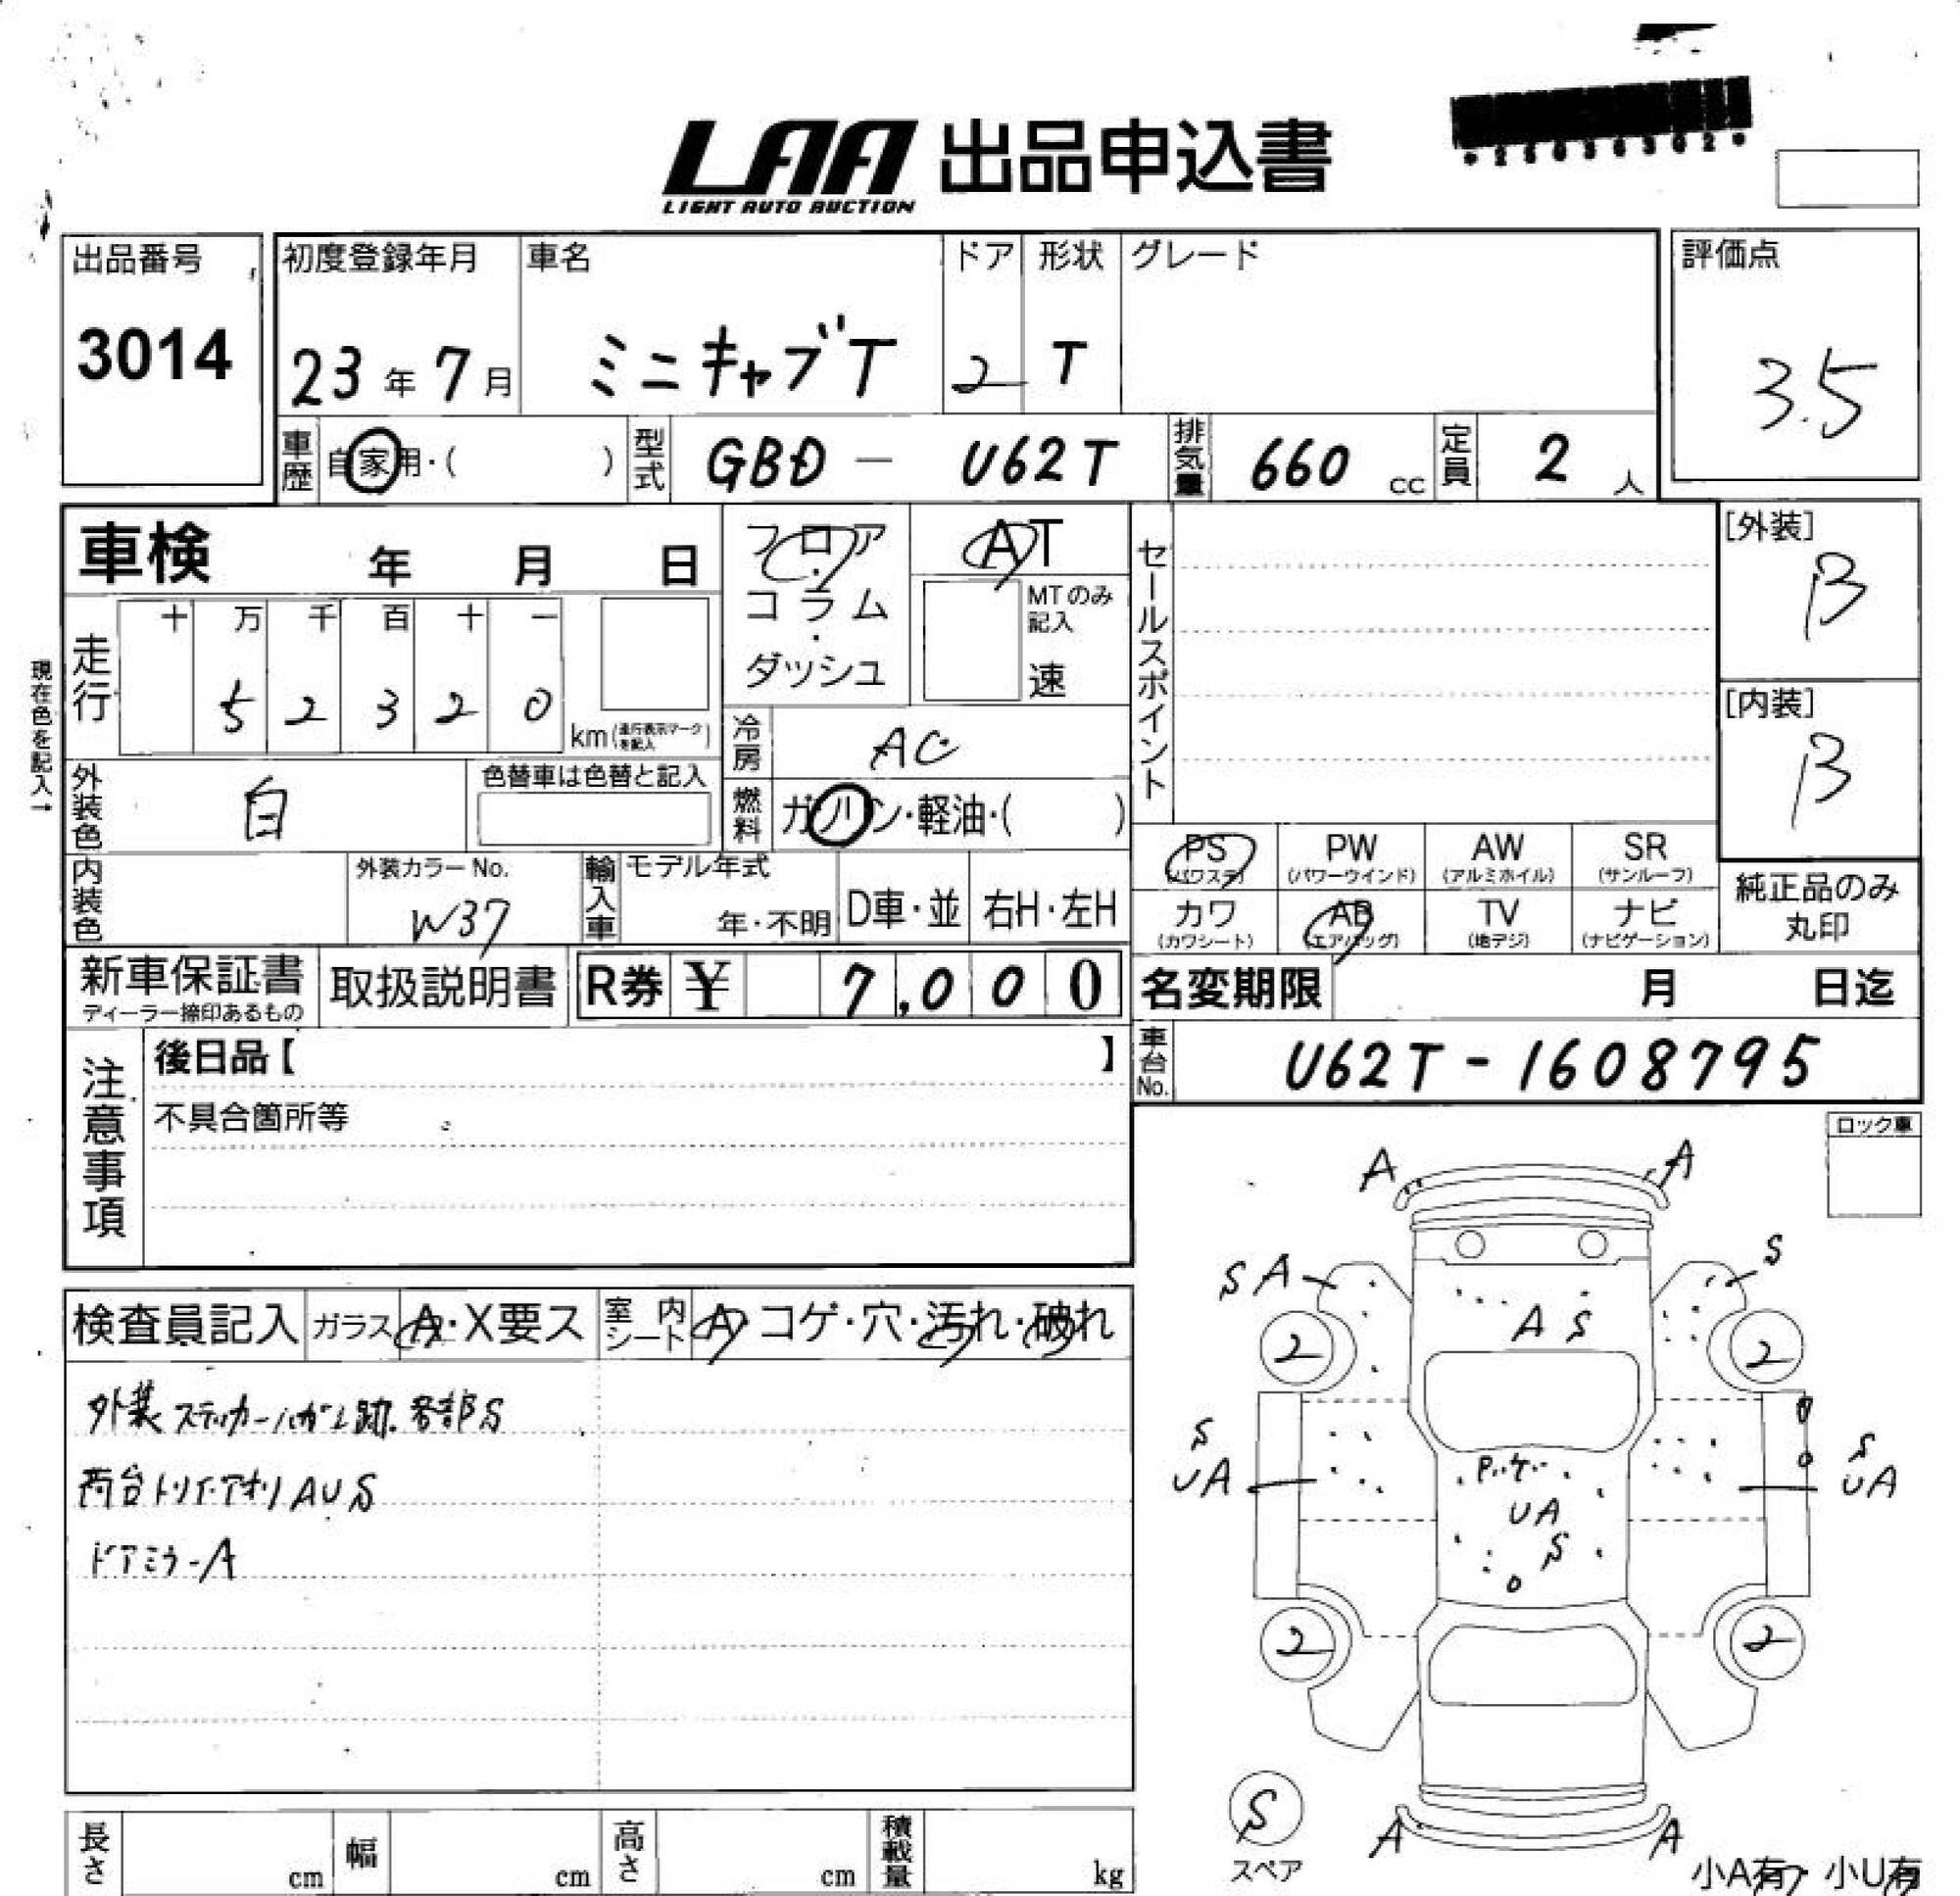 LAA 出品申込書
LIGHT AUTO AUCTION
出品番号
3014
初度登録年月
23年7月
車名
ミニキャブT
ドア
2
形状
T
グレード
評価点
3.5
車歴
自家用・( )
型式
GBD - U62T
排気量
660 cc
定員
2人
車検 年 月 日
フロア・コラム・ダッシュ
AT
MTのみ記入
速
セールスポイント
[外装]
B
[内装]
B
現在色を記入→
走行
十 万 千 百 十 一
5 2 3 2 0
km(走行表示マークを記入)
冷房
AC
外装色
白
色替車は色替と記入
燃料
ガソリン・軽油・( )
PS
(パワステ)
PW
(パワーウインド)
AW
(アルミホイル)
SR
(サンルーフ)
カワ
(カワシート)
AB
(エアバッグ)
TV
(地デジ)
ナビ
(ナビゲーション)
純正品のみ
丸印
内装色
外装カラーNo.
W37
輸入車
モデル年式
年・不明
D車・並
右H・左H
新車保証書
ディーラー捺印あるもの
取扱説明書
R券 ¥ 7,000
名変期限 月 日迄
車台No.
U62T-1608795
注意事項
後日品【 】
不具合箇所等
ロック車
検査員記入
ガラス
A・X要ス
室内シート
A・コゲ・穴・汚れ・破れ
外装ステッカーハガシ跡.各部S
荷台トリイ・アオリAUS
ドアミラーA
A A
SA S
A S
2 2
S S
UA UA
UA
S
2 2
S
スペア
A A
小A有・小U有
長さ cm
幅 cm
高さ cm
積載量 kg